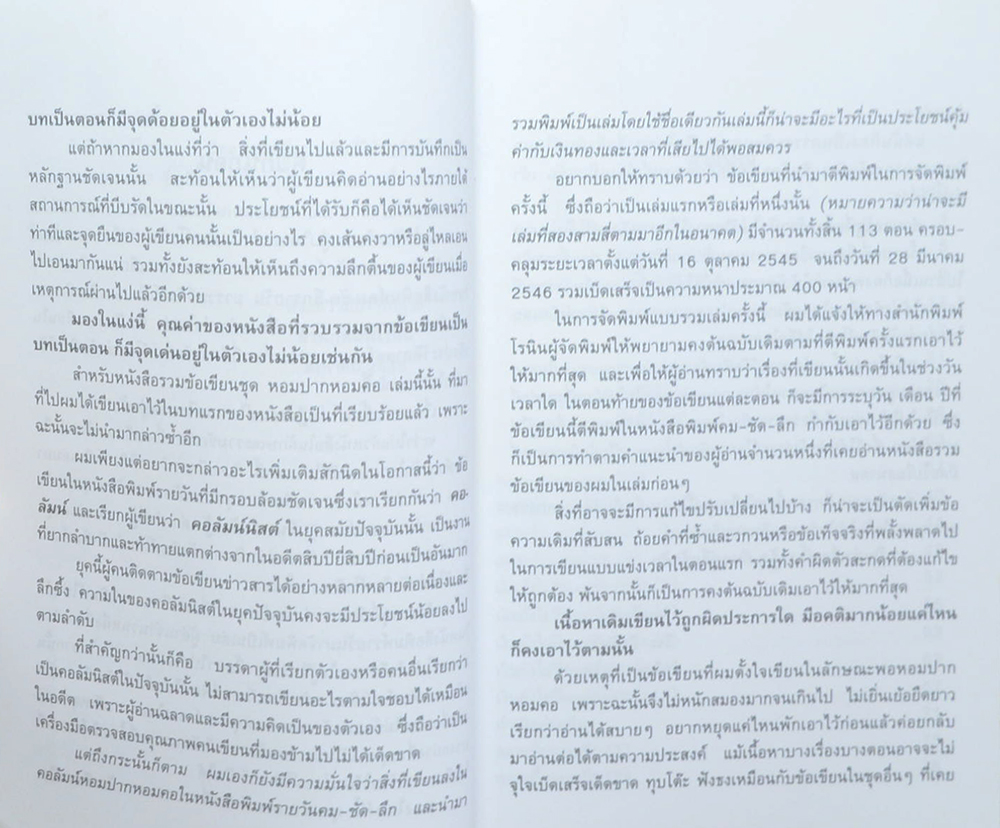 บทเป็นตอนก็มีจุดด้อยอยู่ในตัวเองไม่น้อย
แต่ถ้าหากมองในแง่ที่ว่า สิ่งที่เขียนไปแล้วและมีการบันทึกเป็น
หลักฐานชัดเจนนั้น สะท้อนให้เห็นว่าผู้เขียนคิดอ่านอย่างไรภายใต้
สถานการณ์ที่บีบรัดในขณะนั้น ประโยชน์ที่ได้รับก็คือได้เห็นชัดเจนว่า
ท่าทีและจุดยืนของผู้เขียนคนนั้นเป็นอย่างไร คงเส้นคงวาหรือลู่ไหลเอน
ไปเอนมากันแน่ รวมทั้งยังสะท้อนให้เห็นถึงความลึกตื้นของผู้เขียนเมื่อ
เหตุการณ์ผ่านไปแล้วอีกด้วย
มองในแง่นี้ คุณค่าของหนังสือที่รวบรวมจากข้อเขียนเป็น
บทเป็นตอน ก็มีจุดเด่นอยู่ในตัวเองไม่น้อยเช่นกัน
สำหรับหนังสือรวมข้อเขียนชุด หอมปากหอมคอ เล่มนี้นั้น ที่มา
ที่ไปผมได้เขียนเอาไว้ในบทแรกของหนังสือเป็นที่เรียบร้อยแล้ว เพราะ
ฉะนั้นจะไม่นำมากล่าวซ้ำอีก
ผมเพียงแต่อยากจะกล่าวอะไรเพิ่มเติมสักนิดในโอกาสนี้ว่า ข้อ
เขียนในหนังสือพิมพ์รายวันที่มีกรอบล้อมชัดเจนซึ่งเราเรียกกันว่า คอ-
ลัมน์ และเรียกผู้เขียนว่า คอลัมน์นิสต์ ในยุคสมัยปัจจุบันนั้น เป็นงาน
ที่ยากลำบากและท้าทายแตกต่างจากในอดีตสิบปียี่สิบปีก่อนเป็นอันมาก
ยุคนี้ผู้คนติดตามข้อเขียนข่าวสารได้อย่างหลากหลายต่อเนื่องและ
ลึกซึ้ง ความในของคอลัมนิสต์ในยุคปัจจุบันคงจะมีประโยชน์น้อยลงไป
ตามลำดับ
ที่สำคัญกว่านั้นก็คือ บรรดาผู้ที่เรียกตัวเองหรือคนอื่นเรียกว่า
เป็นคอลัมนิสต์ในปัจจุบันนั้น ไม่สามารถเขียนอะไรตามใจชอบได้เหมือน
ในอดีต เพราะผู้อ่านฉลาดและมีความคิดเป็นของตัวเอง ซึ่งถือว่าเป็น
เครื่องมือตรวจสอบคุณภาพคนเขียนที่มองข้ามไปไม่ได้เด็ดขาด
แต่ถึงกระนั้นก็ตาม ผมเองก็ยังมีความมั่นใจว่าสิ่งที่เขียนลงใน
คอลัมน์หอมปากหอมคอในหนังสือพิมพ์รายวันคม-ชัด-ลึก และนำมา
รวมพิมพ์เป็นเล่มโดยใช้ชื่อเดียวกันเล่มนี้ก็น่าจะมีอะไรที่เป็นประโยชน์คุ้ม
ค่ากับเงินทองและเวลาที่เสียไปได้พอสมควร
อยากบอกให้ทราบด้วยว่า ข้อเขียนที่นำมาตีพิมพ์ในการจัดพิมพ์
ครั้งนี้ ซึ่งถือว่าเป็นเล่มแรกหรือเล่มที่หนึ่งนั้น (หมายความว่าน่าจะมี
เล่มที่สองสามสี่ตามมาอีกในอนาคต) มีจำนวนทั้งสิ้น 113 ตอน ครอบ-
คลุมระยะเวลาตั้งแต่วันที่ 16 ตุลาคม 2545 จนถึงวันที่ 28 มีนาคม
2546 รวมเบ็ดเสร็จเป็นความหนาประมาณ 400 หน้า
ในการจัดพิมพ์แบบรวมเล่มครั้งนี้ ผมได้แจ้งให้ทางสำนักพิมพ์
โรนินผู้จัดพิมพ์ให้พยายามคงต้นฉบับเดิมตามที่ตีพิมพ์ครั้งแรกเอาไว้
ให้มากที่สุด และเพื่อให้ผู้อ่านทราบว่าเรื่องที่เขียนนั้นเกิดขึ้นในช่วงวัน
เวลาใด ในตอนท้ายของข้อเขียนแต่ละตอน ก็จะมีการระบุวัน เดือน ปีที่
ข้อเขียนนี้ตีพิมพ์ในหนังสือพิมพ์คม-ชัด-ลึก กำกับเอาไว้อีกด้วย ซึ่ง
ก็เป็นการทำตามคำแนะนำของผู้อ่านจำนวนหนึ่งที่เคยอ่านหนังสือรวม
ข้อเขียนของผมในเล่มก่อนๆ
สิ่งที่อาจจะมีการแก้ไขปรับเปลี่ยนไปบ้าง ก็น่าจะเป็นตัดเพิ่มข้อ
ความเดิมที่สับสน ถ้อยคำที่ซ้ำและวกวนหรือข้อเท็จจริงที่พลั้งพลาดไป
ในการเขียนแบบแข่งเวลาในตอนแรก รวมทั้งคำผิดตัวสะกดที่ต้องแก้ไข
ให้ถูกต้อง พ้นจากนั้นก็เป็นการคงต้นฉบับเดิมเอาไว้ให้มากที่สุด
เนื้อหาเดิมเขียนไว้ถูกผิดประการใด มีอคติมากน้อยแค่ไหน
ก็คงเอาไว้ตามนั้น
ด้วยเหตุที่เป็นข้อเขียนที่ผมตั้งใจเขียนในลักษณะพอหอมปาก
หอมคอ เพราะฉะนั้นจึงไม่หนักสมองมากจนเกินไป ไม่เยิ่นเย้อยืดยาว
เรียกว่าอ่านได้สบายๆ อยากหยุดแค่ไหนพักเอาไว้ก่อนแล้วค่อยกลับ
มาอ่านต่อได้ตามความประสงค์ แม้เนื้อหาบางเรื่องบางตอนอาจจะไม่
จุใจเบ็ดเสร็จเด็ดขาด ทุบโต๊ะ ฟังธงเหมือนกับข้อเขียนในชุดอื่นๆ ที่เคย